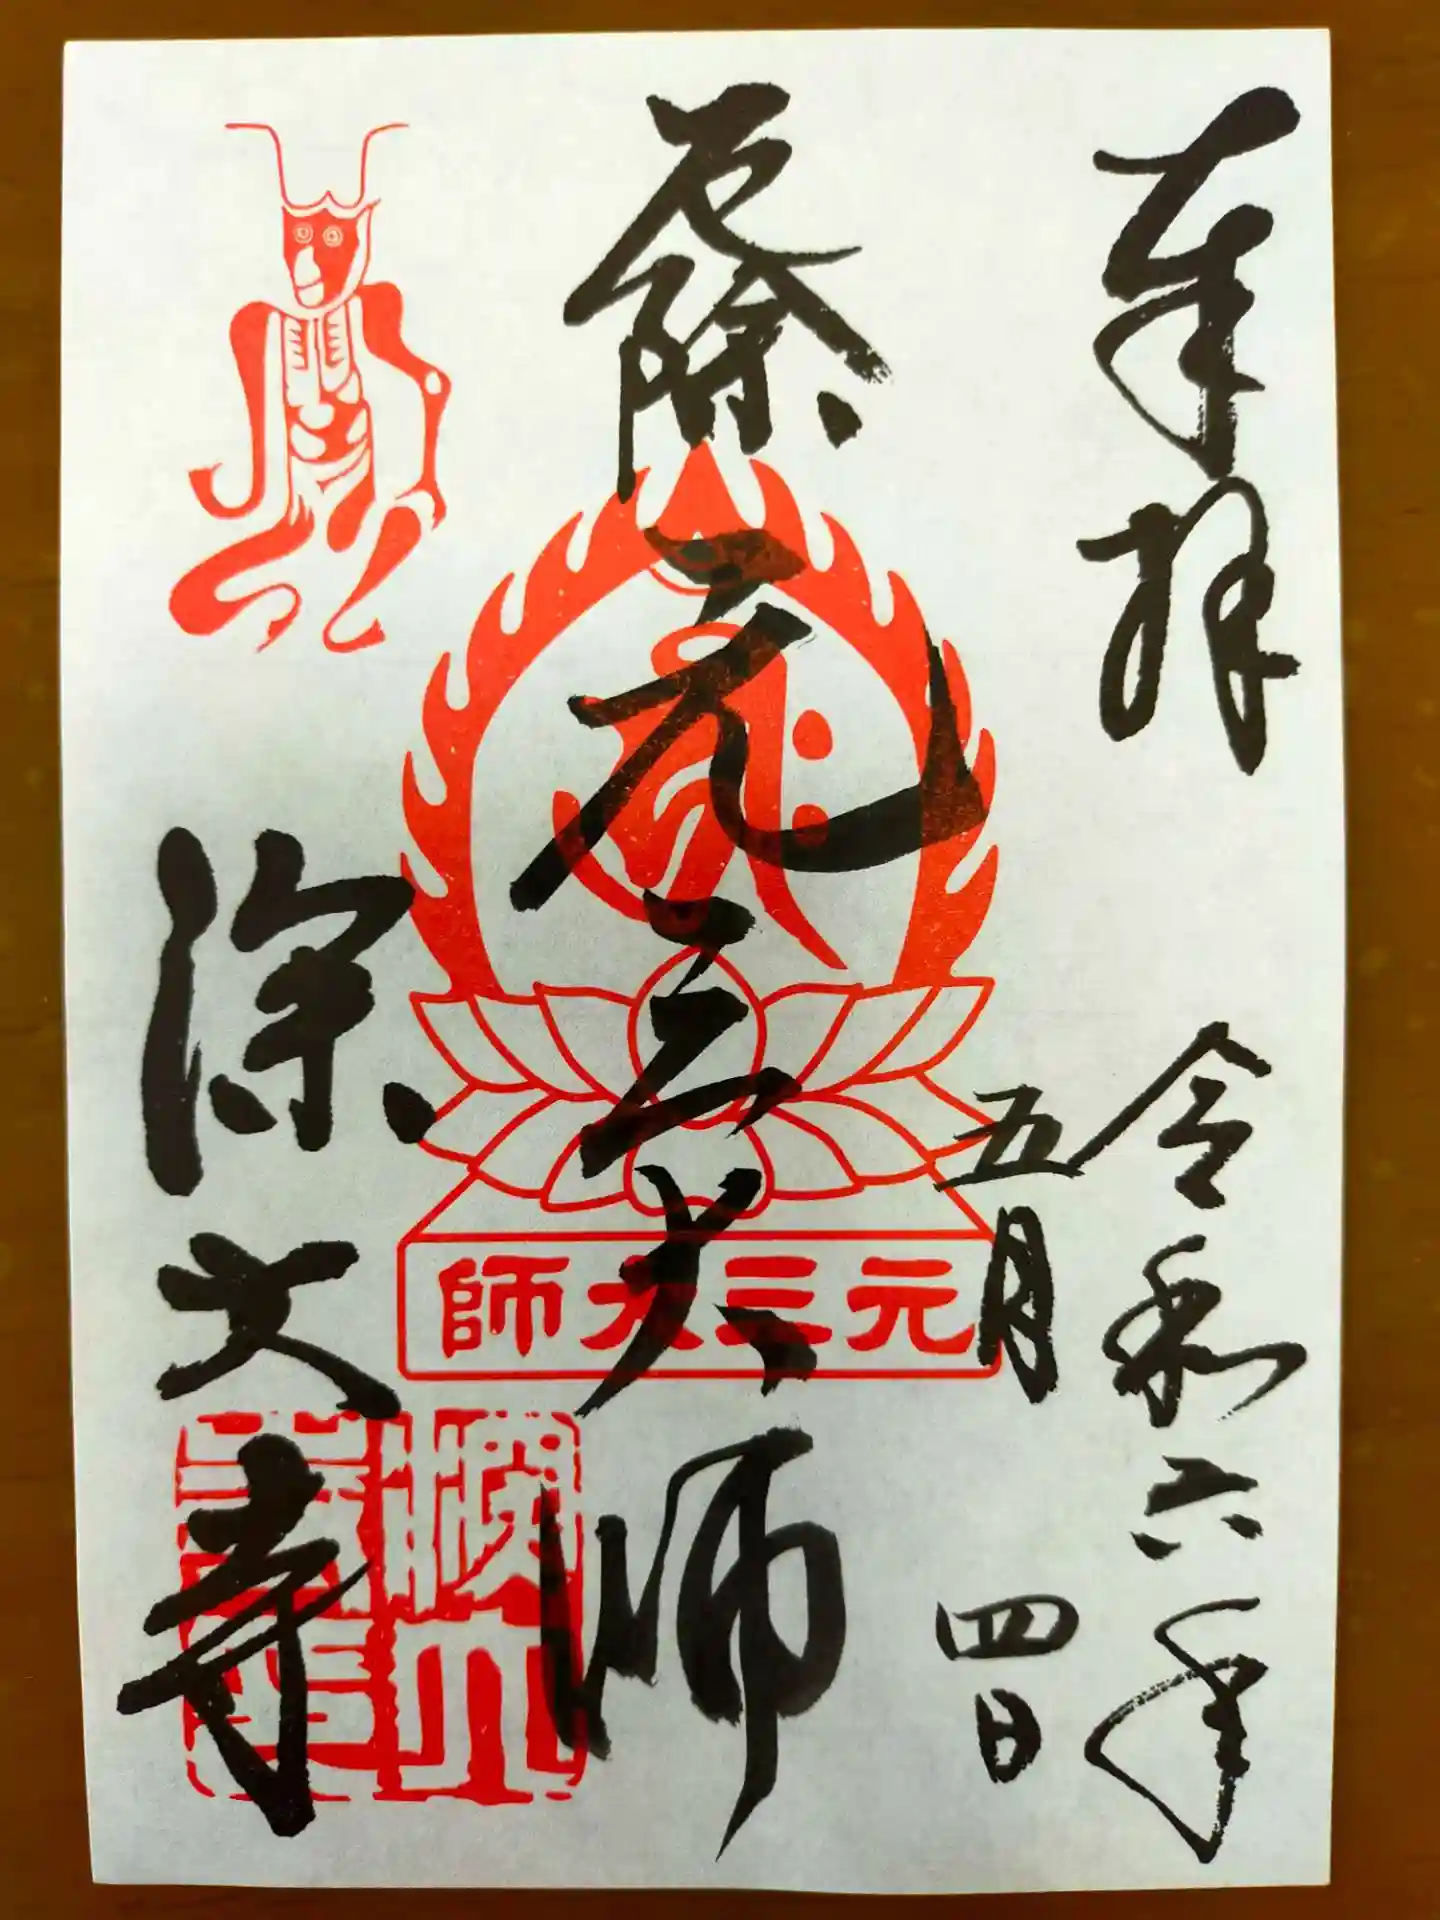 奉拝
令和六年
五月四日
厄除
元三大師
元三大師
深大寺